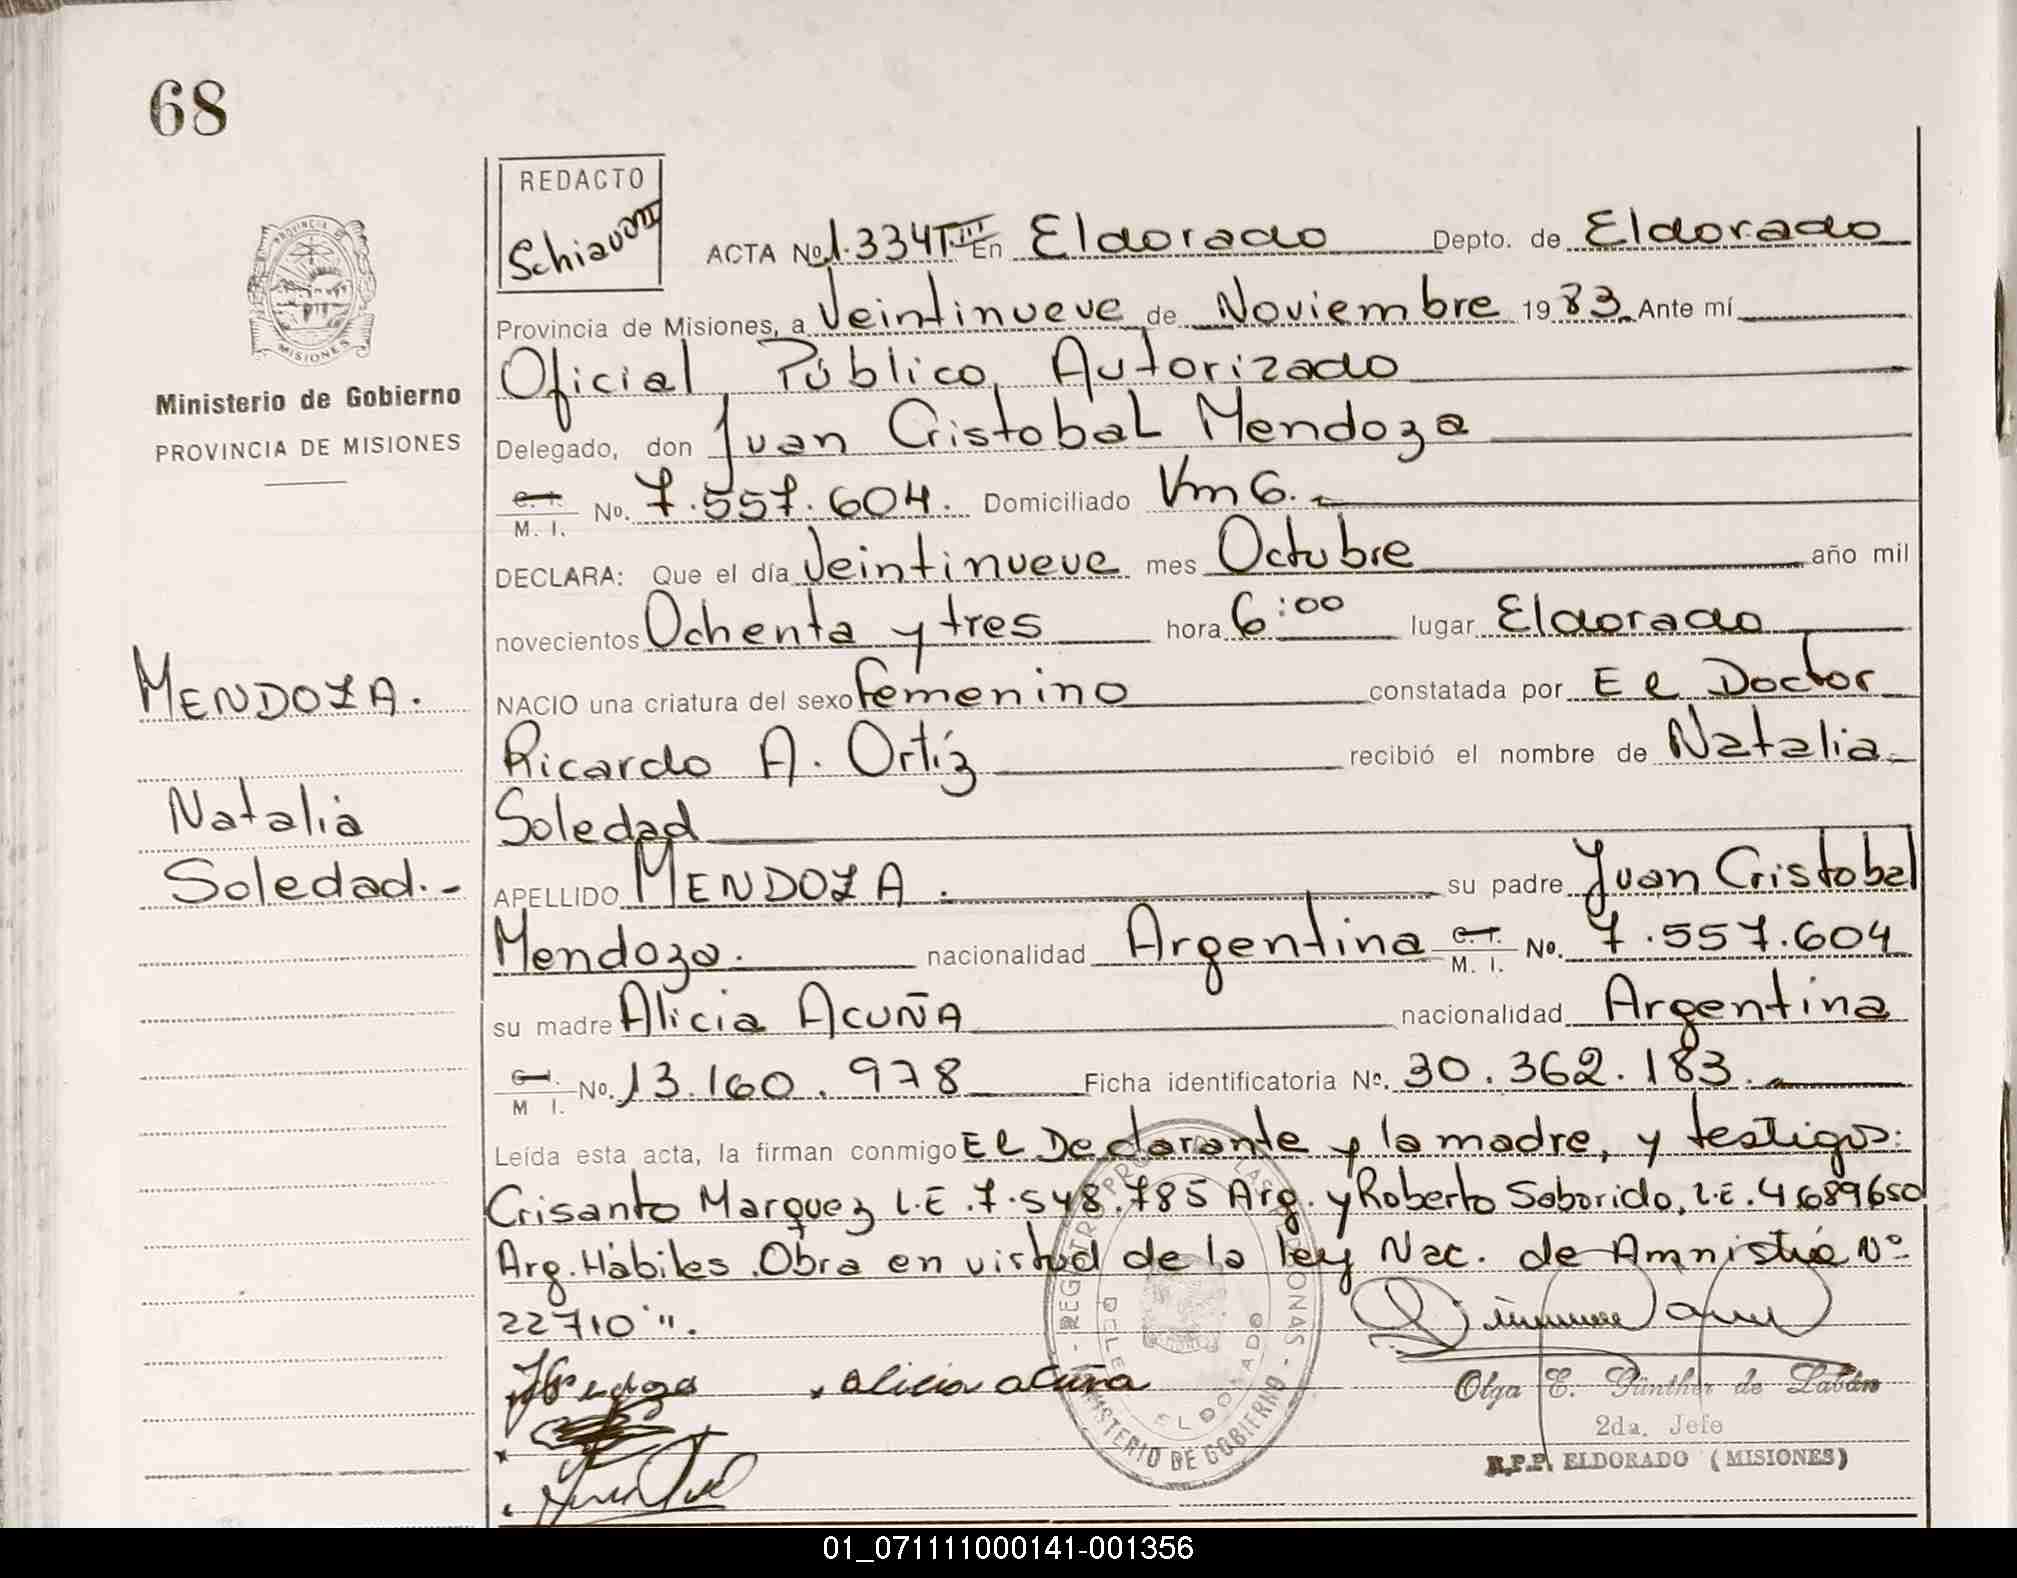 68
REDACTO
Schiavoni
PROVINCIA DE
MISIONES
Ministerio de Gobierno
PROVINCIA DE MISIONES
ACTA No 1.334 TIII En Eldorado Depto. de Eldorado
Provincia de Misiones, a Veintinueve de Noviembre 1983. Ante mí
Oficial Público, Autorizado
Delegado, don Juan Cristobal Mendoza
C. I. M. I. No. 7.557.604. Domiciliado Km 6.
DECLARA: Que el día Veintinueve mes Octubre año mil
novecientos Ochenta y tres hora 6:00 lugar Eldorado
NACIO una criatura del sexo femenino constatada por El Doctor
Ricardo A. Ortíz recibió el nombre de Natalia
Soledad
APELLIDO MENDOZA. su padre Juan Cristobal
Mendoza. nacionalidad Argentina C. I. M. I. No. 7.557.604
su madre Alicia Acuña nacionalidad Argentina
C. I. M I. No. 13.160.978 Ficha identificatoria No. 30.362.183.
Leída esta acta, la firman conmigo El Declarante y la madre, y testigos:
Crisanto Marquez L.E. 7.548.785 Arg. y Roberto Saborido, L.E. 4689650
Arg. Hábiles. Obra en virtud de la ley Nac. de Amnistía Nº
22710".
MENDOZA.
Natalia
Soledad.-
alicia acuña
REGISTRO PROV. DE LAS PERSONAS
DELEG. ELDORADO
MINISTERIO DE GOBIERNO
Olga E. Günther de
2da. Jefe
R.P.P. ELDORADO (MISIONES)
01_071111000141-001356